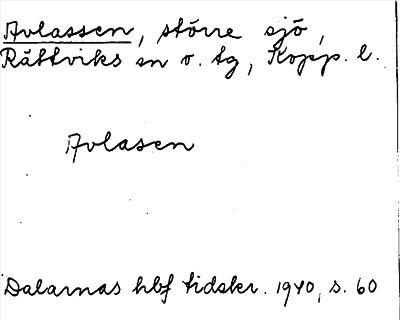 Avlassen, större sjö,
Rättviks sn o. tg, Kopp. l.
Avlasen
Dalarnas hbf tidskr. 1940, s. 60